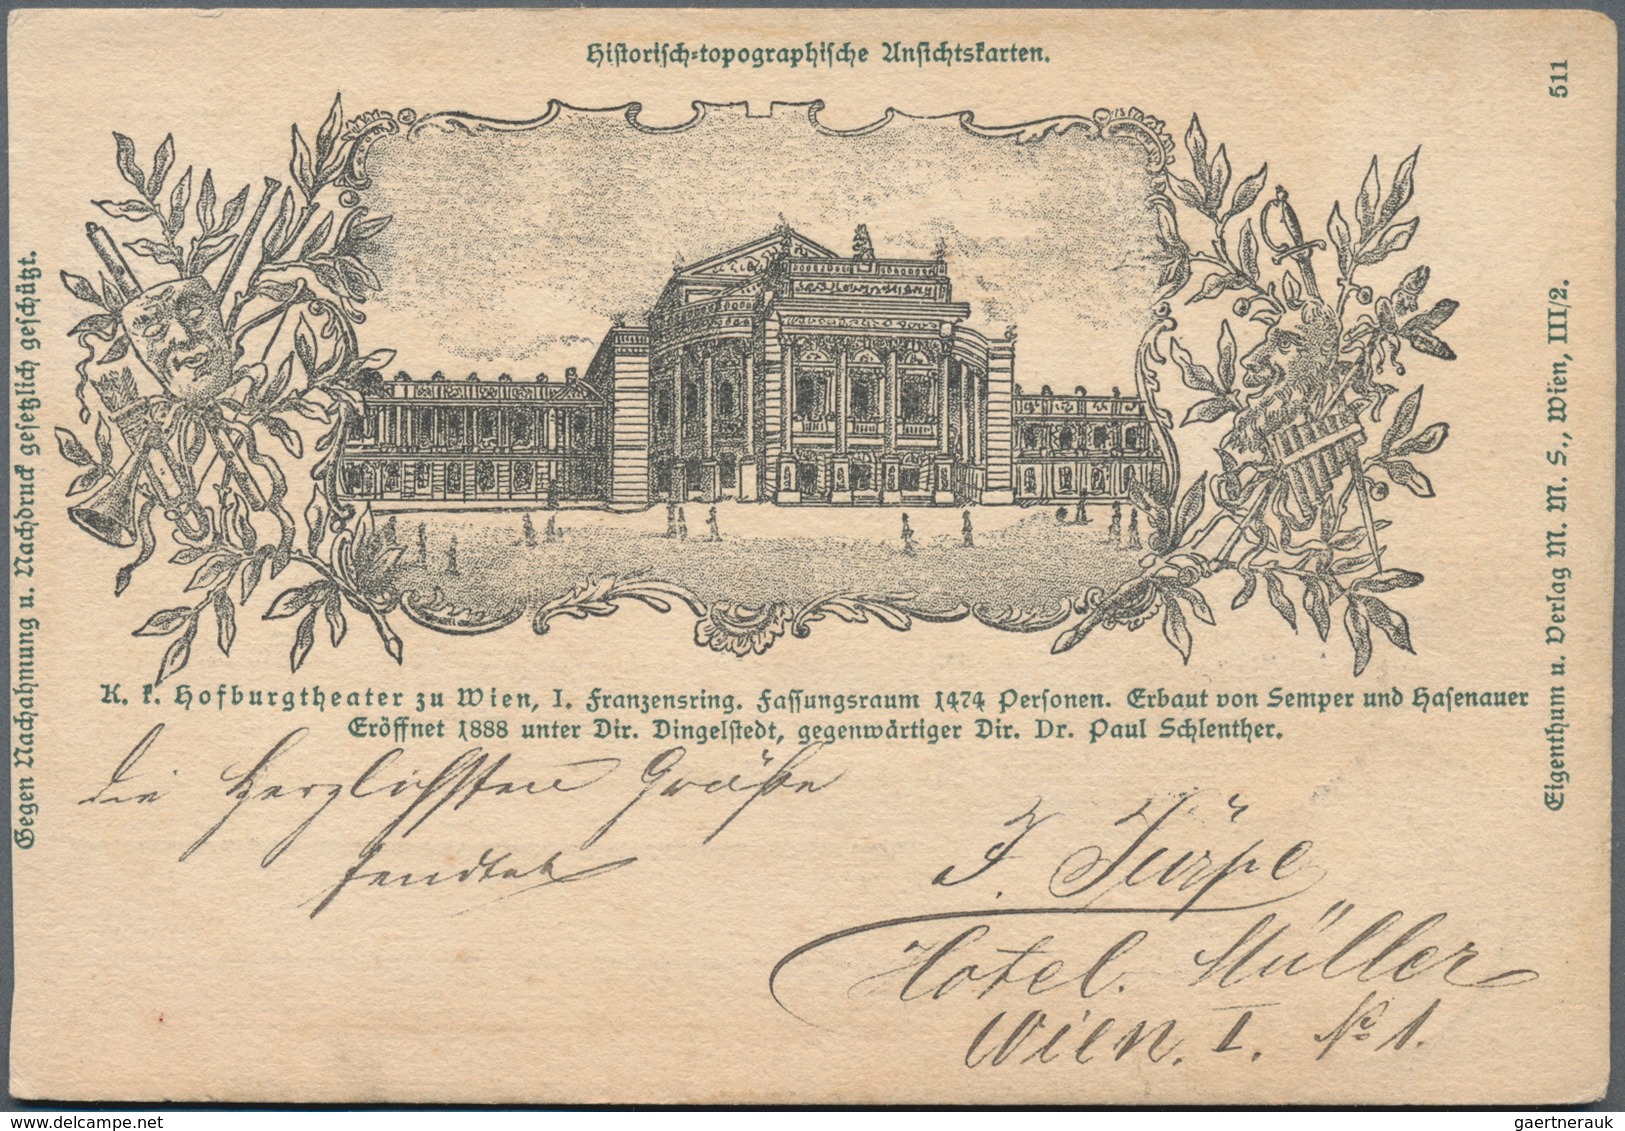 Historisch-topographische Ansichtskarten.
511
Gegen Nachahmung u. Nachdruck gesetzlich geschützt.
Eigenthum u. Verlag M. M. S., Wien, III/2.
K. k. Hofburgtheater zu Wien, I. Franzensring. Fassungsraum 1474 Personen. Erbaut von Semper und Hasenauer
Eröffnet 1888 unter Dir. Dingelstedt, gegenwärtiger Dir. Dr. Paul Schlenther.
Die Herzlichsten Grüße
sendet
F. Türpe
Hotel. Müller
Wien. I. No 1.
gaertnerauk